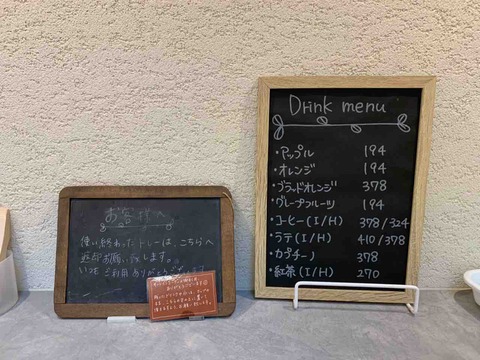 お客様へ
使い終わったトレーは、こちらへ
返却お願い致します。
いつも ご利用 ありがとうございます
Drink menu
・アップル 194
・オレンジ 194
・ブラッドオレンジ 378
・グレープフルーツ 194
・コーヒー(I/H) 378/324
・ラテ(I/H) 410/378
・カプチーノ 378
・紅茶(I/H) 270